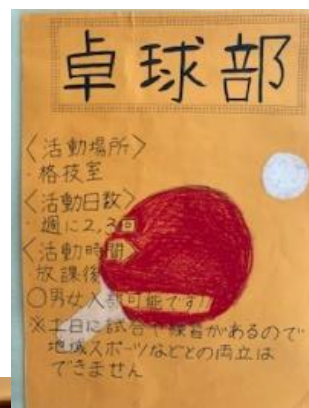 卓球部
〈活動場所〉
・格技室
〈活動日数〉
・週に2,3回
〈活動時間〉
放課後
○男女入部可能です!
※土日に試合や練習があるので
地域スポーツなどとの両立は
できません